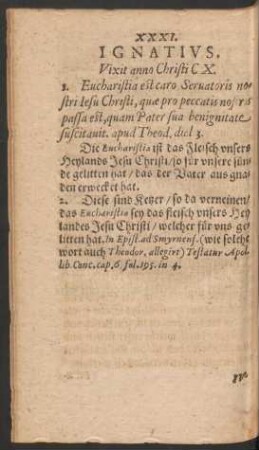 XXXI.
IGNATIVS.
Vixit anno Christi CX.
1. Eucharistia est caro Seruatoris no-
stri Iesu Christi, quæ pro peccatis nostris
passa est, quam Pater sua benignitate
suscitauit. apud Theod. dial 3.
Die Eucharistia ist das Fleisch vnsers
Heylands Jesu Christi/ so für vnsere sün-
de gelitten hat/ das der Vater aus gna-
den erwecket hat.
2. Diese sind Ketzer/ so da verneinen/
das Eucharistia sey das fleisch vnsers Hey
landes Jesu Christi/ welcher für vns ge-
litten hat. In Epist. ad Smyrnens. (wie solche
wort auch Theodor. allegirt) Testatur Apol.
lib. Conc. cap. 6. fol. 195. in 4.